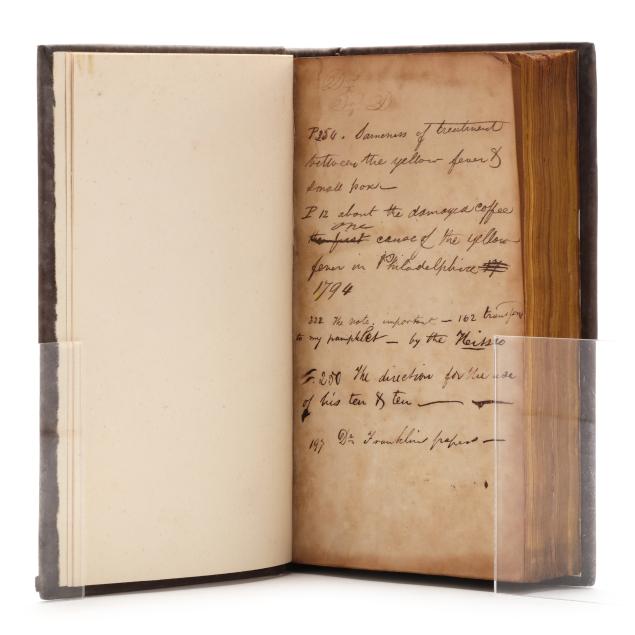 P 254. Sameness of treatment
between the yellow fever &
small pox
P 12 about the damaged coffee
one
the first cause of the yellow
fever in Philadelphia
1794
222 The note, important — 162
to my pamphlet — by the
P. 250 The direction for the use
of his ten & ten —— —
197 Dr Franklin papers —